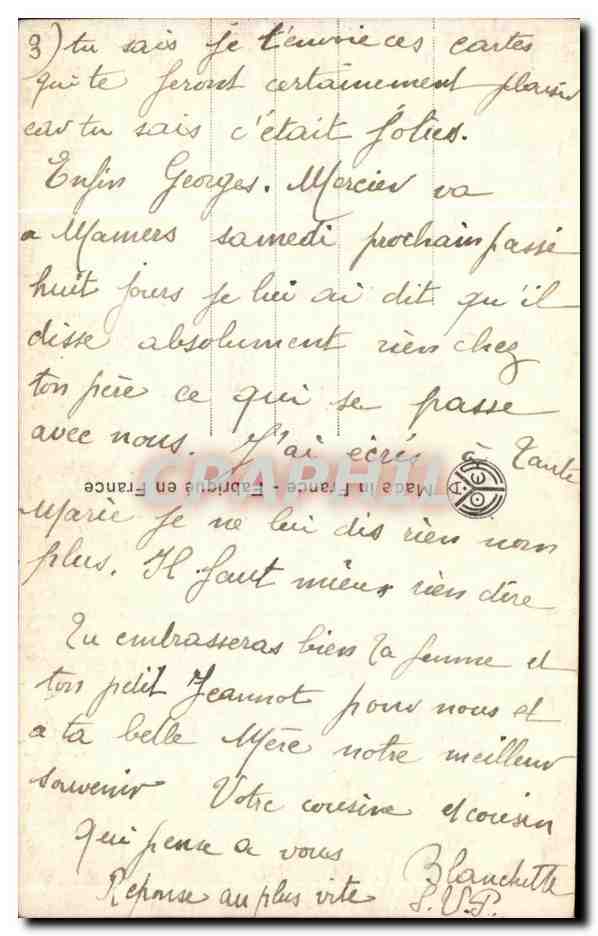 3) tu sais je t'envoie ces cartes
qui te feront certainement plaisir
car tu sais c'était jolies.
Enfin Georges. Mercier va
a Mamers samedi prochain passé
huit jours je lui ai dit qu'il
disse absolument rien chez
ton père ce qui se passe
avec nous. J'ai écris à Tante
CPARAMA
Made in France - Fabriqué en France
Marie je ne lui dis rien non
plus. Il faut mieux rien dire
Tu embrasseras bien ta femme et
ton petit Jeannot pour nous et
a ta belle Mère notre meilleur
souvenir Votre cousine et cousin
qui pense a vous
Blanchette
Reponse au plus vite S.V.P.